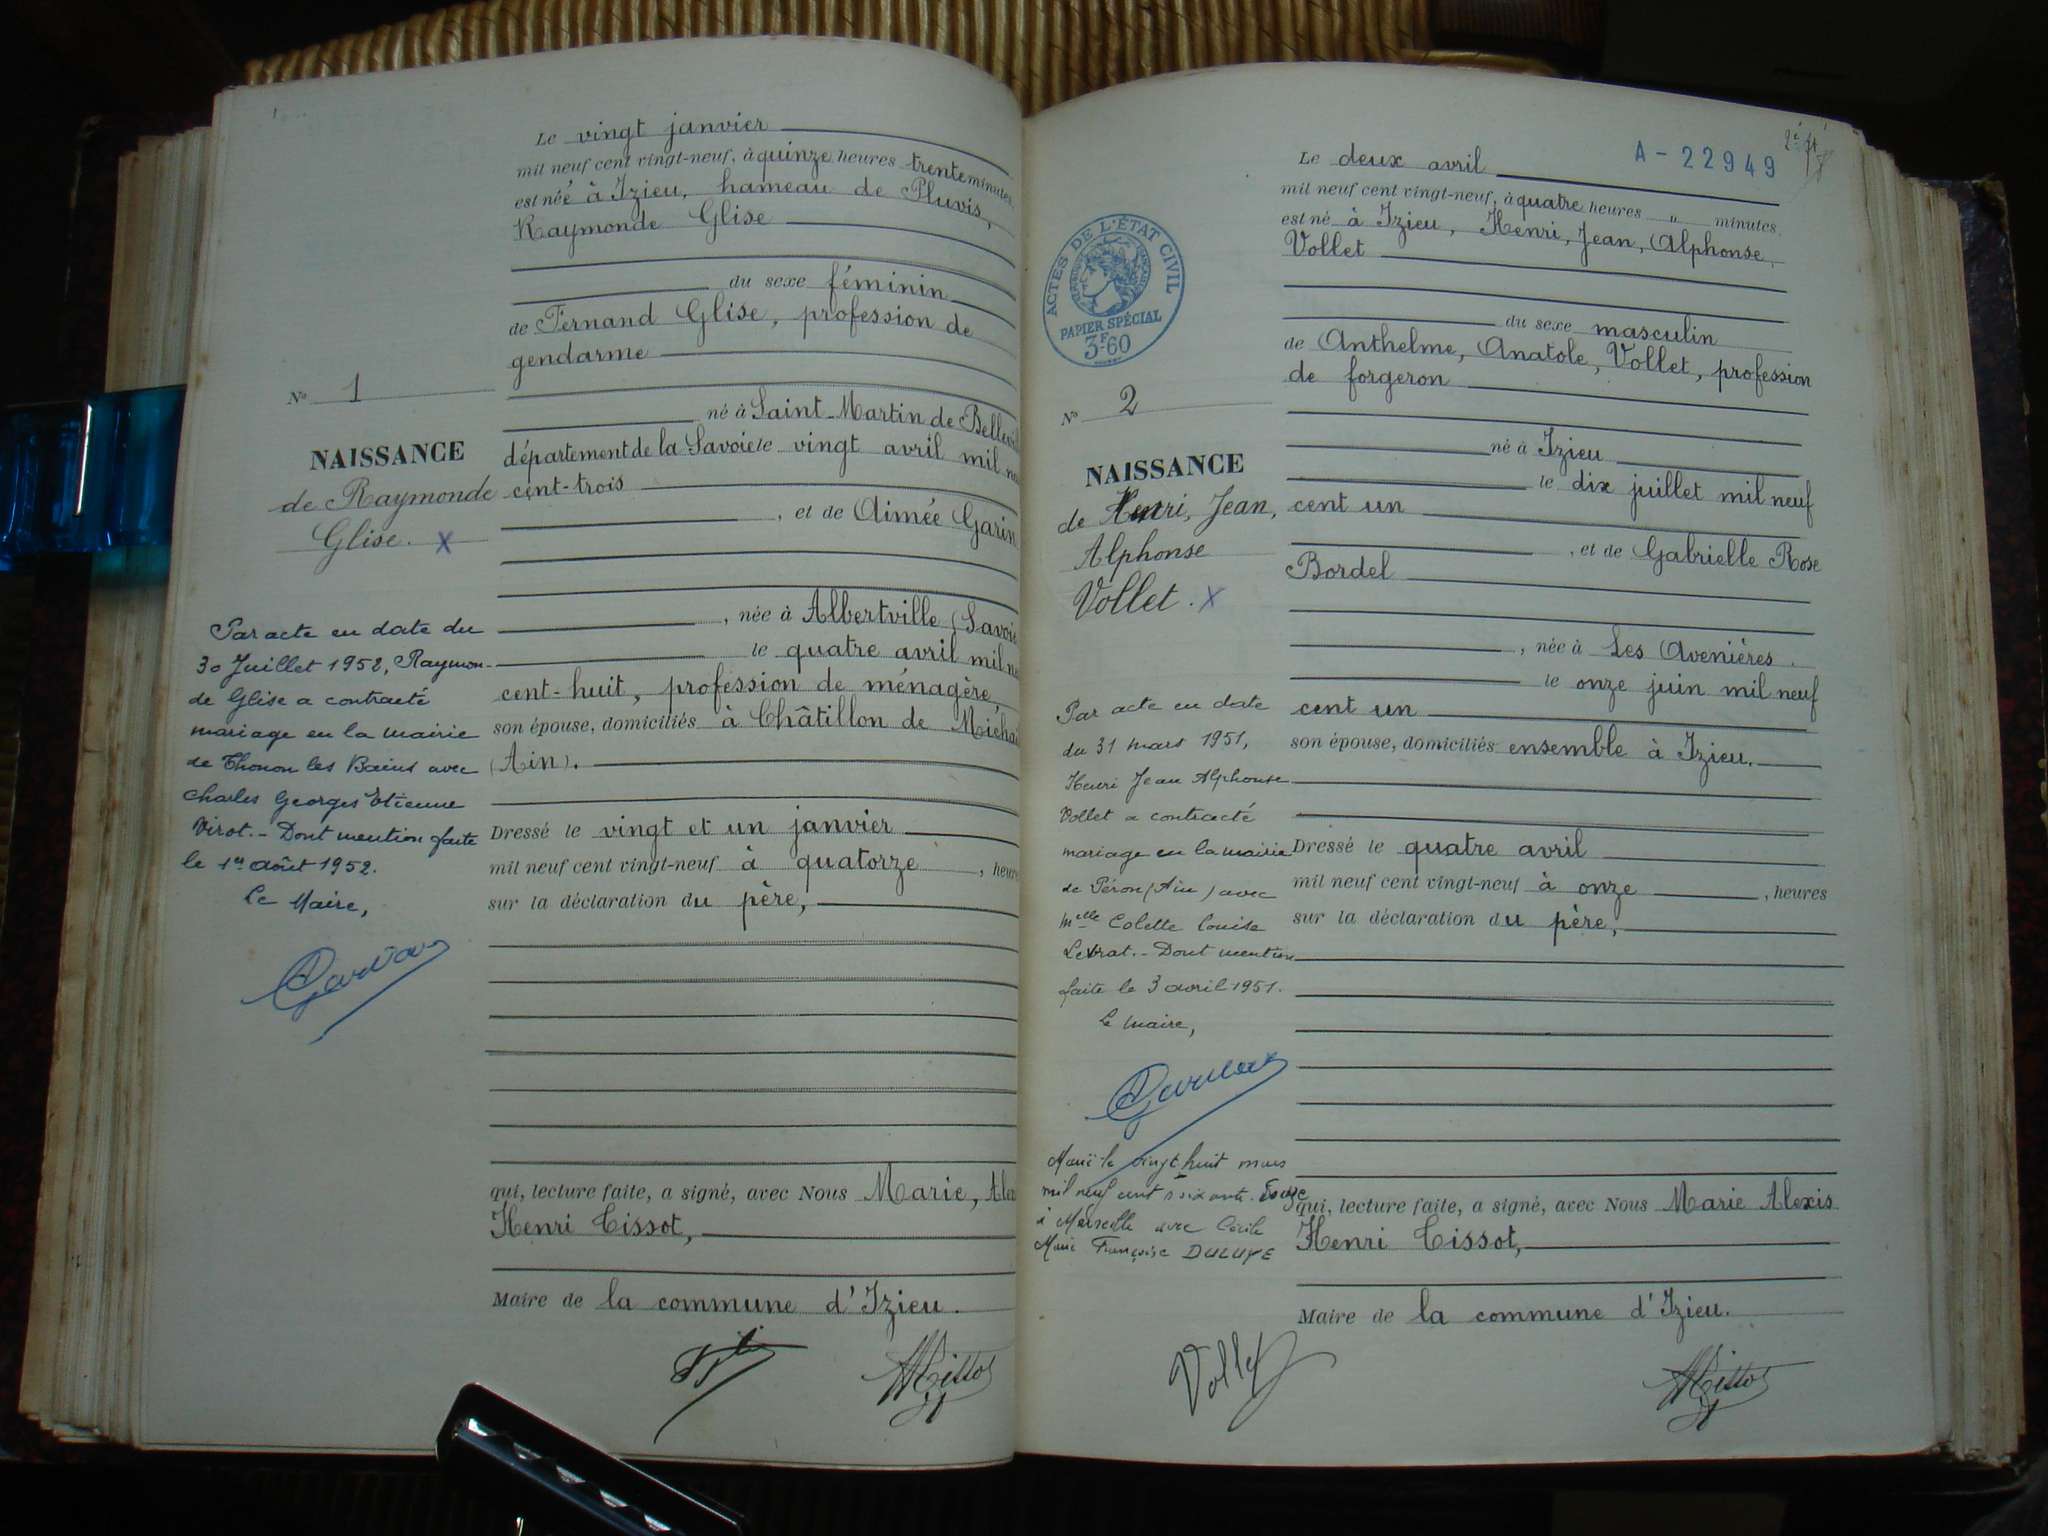 Le vingt janvier
mil neuf cent vingt-neuf, à quinze heures trente minutes
est née à Izieu, hameau de Pluvis,
Raymonde Glise
du sexe féminin
de Fernand Glise, profession de
gendarme
né à Saint-Martin de Bellevil
département de la Savoie le vingt avril mil
cent-trois
, et de Aimée Garin
, née à Albertville (Savoie
le quatre avril mil
cent-huit, profession de ménagère,
son épouse, domiciliés à Châtillon de Michai
(Ain).
Dressé le vingt et un janvier
mil neuf cent vingt-neuf à quatorze, heures
sur la déclaration du père,
qui, lecture faite, a signé, avec Nous Marie, Alex
Henri Tissot,
Maire de la commune d'Izieu.
No 1
NAISSANCE
de Raymonde
Glise. X
Par acte en date du
30 Juillet 1952, Raymon-
de Glise a contracté
mariage en la mairie
de Thonon les Bains avec
Charles Georges Etienne
Virot.- Dont mention faite
le 1er août 1952.
Le Maire,
A-22949
Le deux avril
mil neuf cent vingt-neuf, à quatre heures " minutes.
est né à Izieu, Henri, Jean, Alphonse,
Vollet
du sexe masculin
de Anthelme, Anatole, Vollet, profession
de forgeron
né à Izieu
le dix juillet mil neuf
cent un
, et de Gabrielle Rose
Bordel
, née à Les Avenières.
le onze juin mil neuf
cent un
son épouse, domiciliés ensemble à Izieu.
Dressé le quatre avril
mil neuf cent vingt-neuf à onze, heures
sur la déclaration du père,
qui, lecture faite, a signé, avec Nous Marie Alexis
Henri Tissot,
Maire de la commune d'Izieu.
Vollet
ACTES DE L'ÉTAT CIVIL
PAPIER SPÉCIAL
3F60
No 2
NAISSANCE
de Henri, Jean,
Alphonse
Vollet. X
Par acte en date
du 31 mars 1951,
Henri Jean Alphonse
Vollet a contracté
mariage en la mairie
de Péron (Ain) avec
Melle Colette Louise
Dont mention
faite le 3 avril 1951.
Le Maire,
Marié le vingt huit mars
mil neuf cent soixante
à Marseille avec Cécile
Marie Françoise